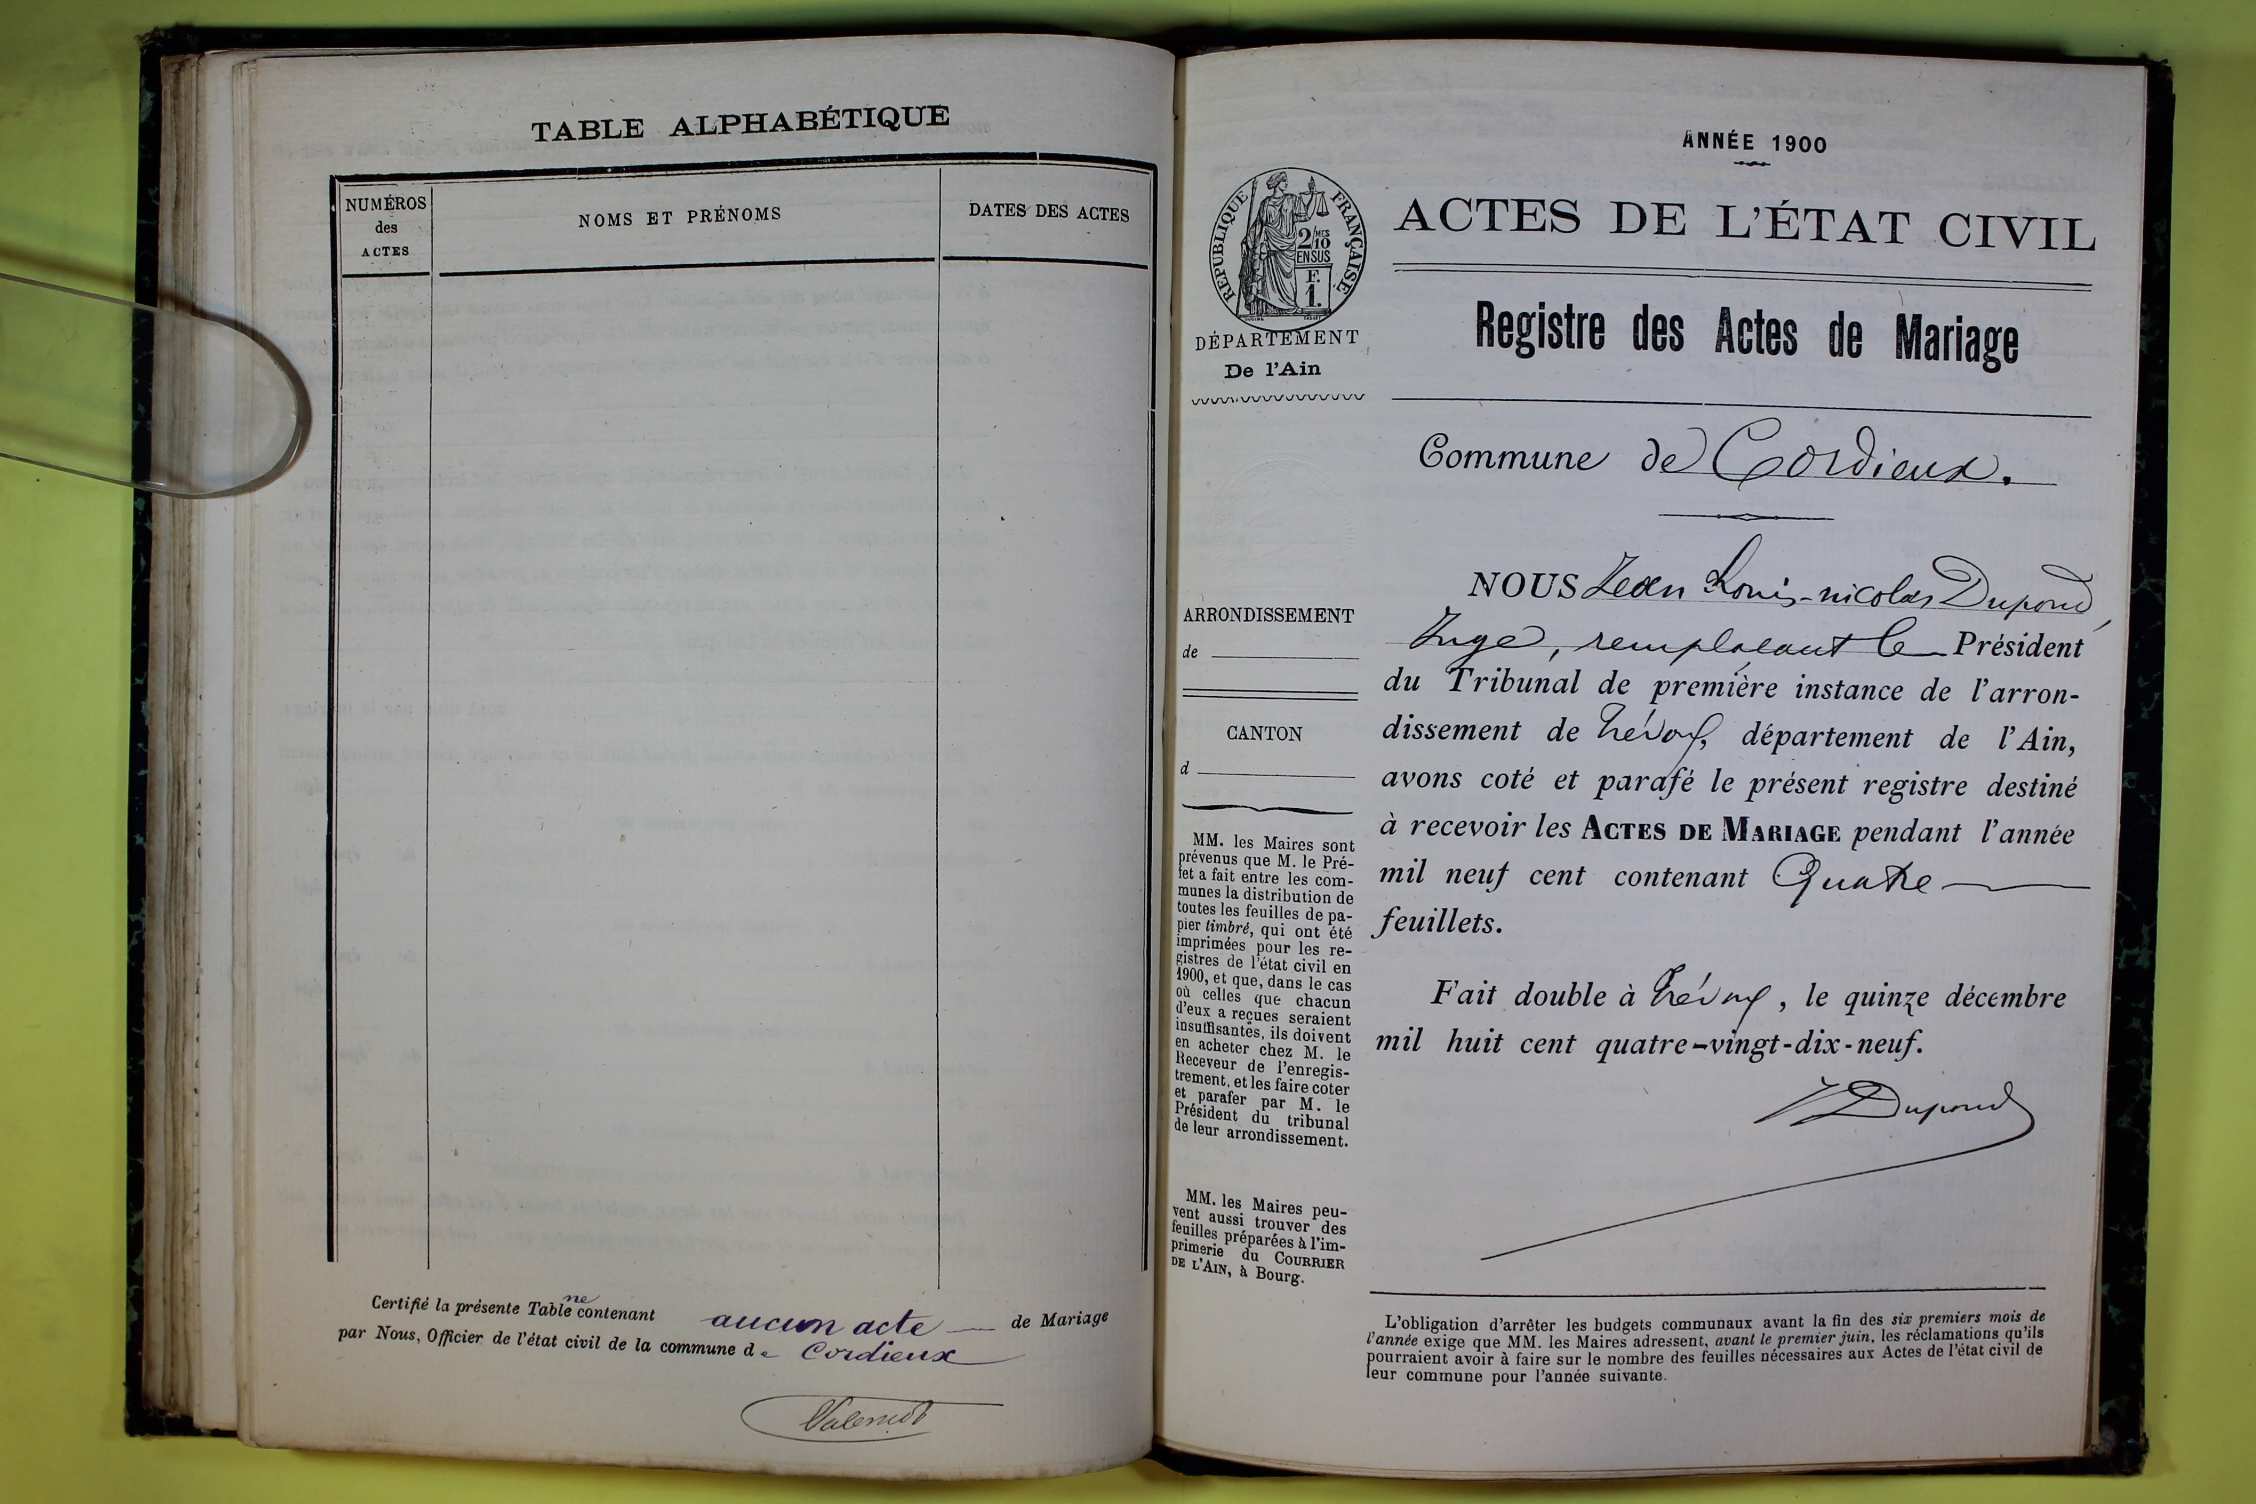 TABLE ALPHABÉTIQUE
NUMÉROS
des
ACTES
NOMS ET PRÉNOMS
DATES DES ACTES
ne
Certifié la présente Table contenant aucun acte de Mariage
par Nous, Officier de l'état civil de la commune de Cordieux
ANNÉE 1900
RÉPUBLIQUE FRANÇAISE
2/10 MES
EN SUS
F.
1.
DÉPARTEMENT
De l'Ain
ACTES DE L'ÉTAT CIVIL
Registre des Actes de Mariage
Commune de Cordieux.
ARRONDISSEMENT
de
CANTON
d
MM. les Maires sont
prévenus que M. le Pré-
fet a fait entre les com-
munes la distribution de
toutes les feuilles de pa-
pier timbré, qui ont été
imprimées pour les re-
gistres de l'état civil en
1900, et que, dans le cas
où celles que chacun
d'eux a reçues seraient
insuffisantes, ils doivent
en acheter chez M. le
Receveur de l'enregis-
trement, et les faire coter
et parafer par M. le
Président du tribunal
de leur arrondissement.
MM. les Maires peu-
vent aussi trouver des
feuilles préparées à l'im-
primerie du COURRIER
DE L'AIN, à Bourg.
NOUS Jean Louis-nicolas Dupond,
Juge, remplacant le Président
du Tribunal de première instance de l'arron-
dissement de Trévoux, département de l'Ain,
avons coté et parafé le présent registre destiné
à recevoir les ACTES DE MARIAGE pendant l'année
mil neuf cent contenant Quatre
feuillets.
Fait double à Trévoux, le quinze décembre
mil huit cent quatre-vingt-dix-neuf.
Dupond
L'obligation d'arrêter les budgets communaux avant la fin des six premiers mois de
l'année exige que MM. les Maires adressent, avant le premier juin, les réclamations qu'ils
pourraient avoir à faire sur le nombre des feuilles nécessaires aux Actes de l'état civil de
leur commune pour l'année suivante.